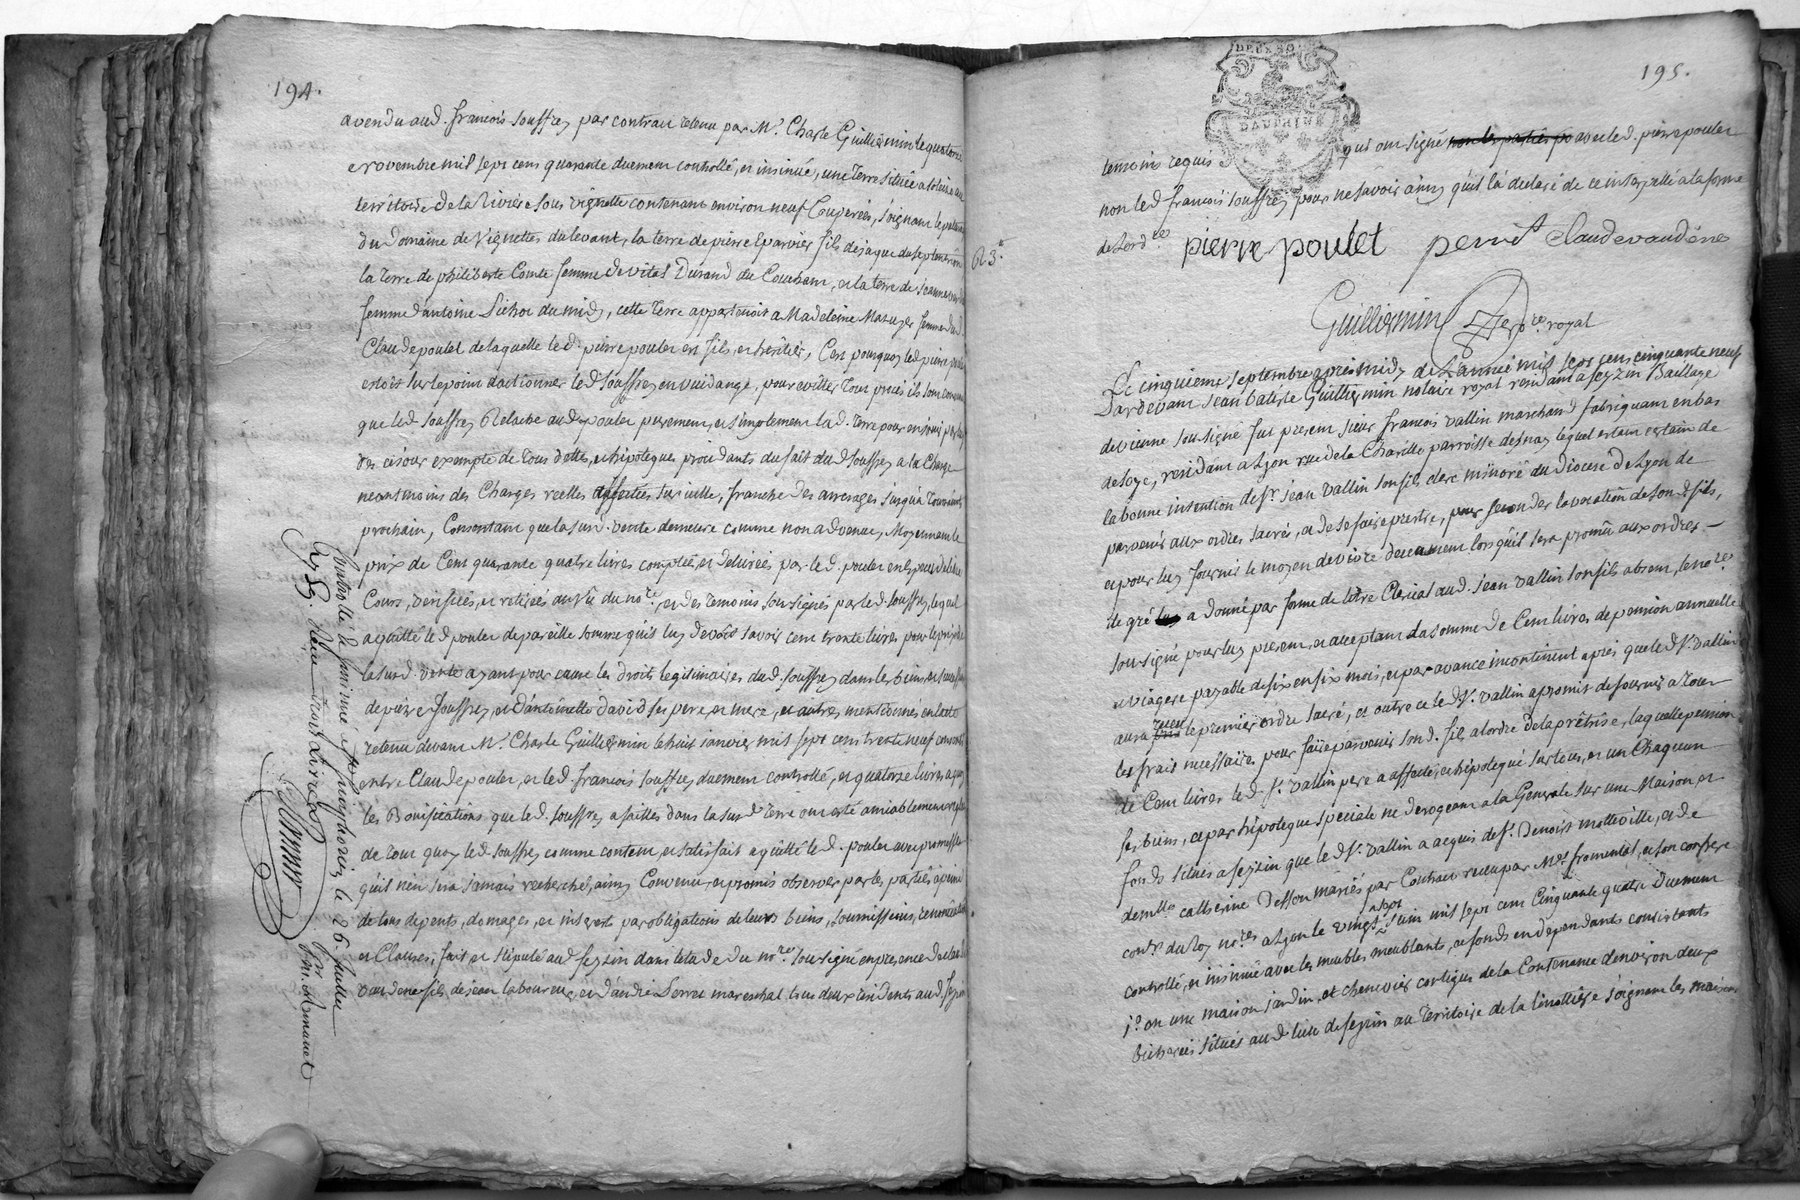 194.
a vendu aud. francois souffrey par contrau retenu par Me. Charle Guilliermin le quatorze
novembre mil sept cens quarante duement controllé, et insinué, une Terre située a
territoire de la riviere sous vignette contenant environ neuf Couperées, joignant le
du Domaine de Vignettes du levant, la terre de pierre Eparvier fils de jaque du septentrion
la Terre de philiberte Comte femme de vital Durand du Couchant, et la terre de jeanne
femme d'antoine du midy, cette Terre appartenoit a Madeleine Mazuyer femme dud.
Claude poulet de laquelle led. pierre poulet en fils, et heritier, C'en pourquoy led pierre
estoit sur le point dactionner led. Souffrey en vuidange, pour eviter Tout procès ils sont convenus
que led. Souffrey Relache aud poulet purement, et simplement lad. Terre pour en jouir
des ce jour exempte de Tous dettes, et hipoteques procedants du fait dud Souffrey a la Charge
neantmoins des Charges reelles affectées sur icelle, franche des arrerages jusqu'à Toussaints
prochain, Consentant que la susd. vente demeure comme non advenue, Moyennant le
prix de Cent quarante quatre livres comptées, et delivrées par led. poulet en Especes de
Cours, verifiées, et retirées au vû du nore. et des temoins soussignés par led. souffrey, lequel
a quitté led poulet de pareille somme qu'il luy devoit savoir cent trente livres pour le prix de
la susd. vente ayant pour cause les droits legitimaires dud. souffrey dans les biens, et succession
de pierre souffrey, et d'antoinette david ses pere, et mere, et autres mentionnés en lacte
retenu devant Me. Charle Guilliermin le huit janvier mil sept cens trente neuf
entre Claude poulet, et led. francois souffrey duement controllé, et quatorze livres a quoy
les Bonifications que led. souffrey a faittes dans la susd. Terre ont esté amiablement
de Tout quoy led souffrey comme content, et satisfait a quitté led. poulet avec promesse
qu'il n'en sera jamais recherché, ainsy Convenu, et promis observer par les parties a peine
de tous depens, domages, et interest par obligations de leurs biens, soumissions, renonciations
et Clauses, fait et stipulé aud seyzin dans letude du nore. soussigné en presence de claude
vaudene fils de jean laboureur, et d'andré Perret mareschal tous deux residents aud. seyzin
Controllé & insinué a St Simphorien le 26. juillet
1759. Reçu trois livres
195.
DEUX SO
DAUPHINÉ
temoins requis qui ont signé avec led. pierre poulet
non led francois souffrey pour ne savoir ainsy qu'il l'a declaré de ce interpellé a la forme
de lordce.
pierre poulet perret claude vaudene
Guilliermin nore royal
63e.
Le cinquieme septembre apres midy de l'année mil sept cens cinquante neuf
Pardevant jean batiste Guilliermin notaire royal residant a seyzin Baillage
de vienne soussigné fut present sieur francois vallin marchand fabriquant en bas
de soye, residant a Lyon rue de la Charitté parroisse desnay lequel estant certain de
la bonne intention de Sr. jean vallin son fils clerc minoré du Diocese de Lyon de
parvenir aux ordres sacrés, et de se faire prestre, pour seconder la vocation de son d fils,
et pour luy fournir le moyen de vivre decemment lorsqu'il sera promû aux ordres —
de gré a donné par forme de titre Clerical aud. jean vallin son fils absent, le nore.
soussigné pour luy present, et acceptant la somme de Cent livres de pension annuelle
et viagere payable de six en six mois, et par avance incontinent après que led Sr. vallin
aura reçu le premier ordre sacré, et outre ce led Sr. vallin a promis de fournir a tous
les frais necessaires pour faire parvenir sond. fils a lordre de la prêtrise, laquelle pension
de Cent livres led. Sr. vallin pere a affecté, et hipotequé sur tous, et un Chaquun
ses biens, et par hipoteque speciale ne derogeant a la Generale sur une Maison, et
fonds situés a seyzin que led Sr. vallin a acquis de Sr. Benoist motteville, et de
demlle catherine Desson mariés par Contract reçu par Mes. fromental, et son confrere
conrs du Roy nores a Lyon le vingt sept juin mil sept cens Cinquante quatre duement
controllé, et insinué avec les meubles meublants, et fonds en dependants consistants
1o. en une maison jardin, et chenevier contigus de la Contenance denviron deux
bicherées situés aud lieu de seyzin au Territoire de la joignant les maisons